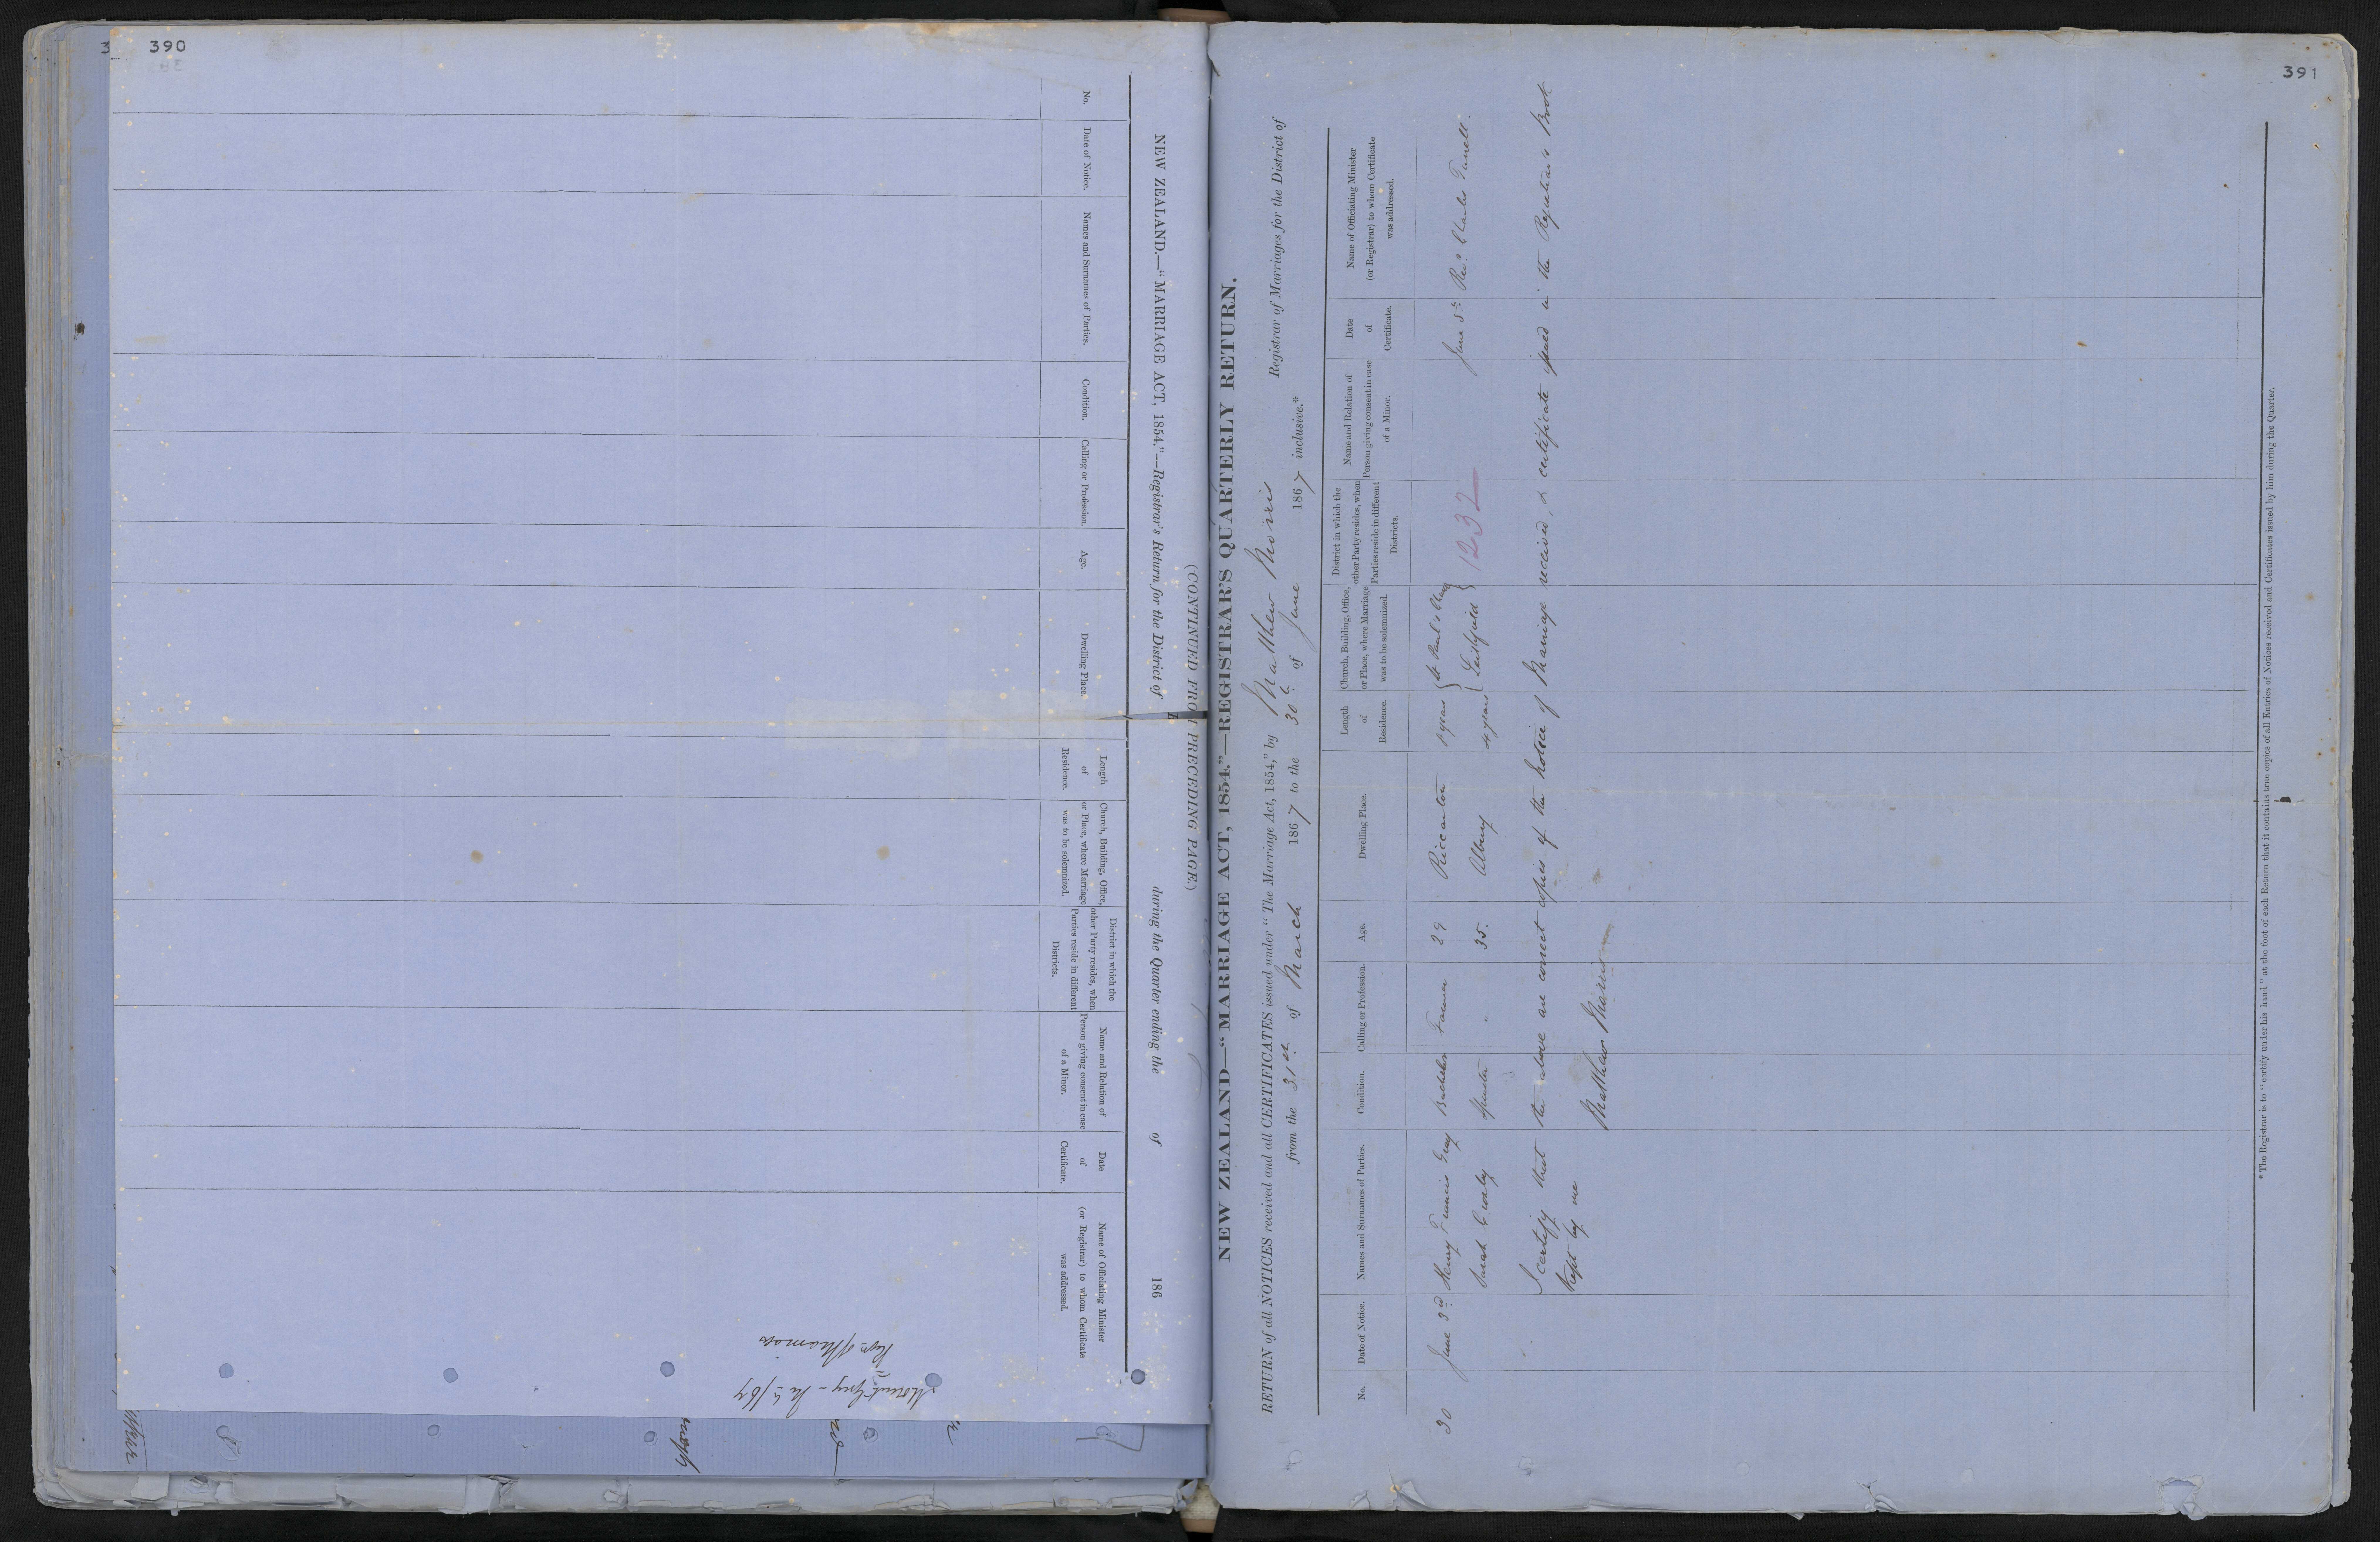 390
NEW ZEALAND.—“MARRIAGE ACT, 1854.”—Registrar's Return for the District of during the Quarter ending the of 186
(CONTINUED FROM PRECEDING PAGE.)
No.
Date of Notice.
Names and Surnames of Parties.
Condition.
Calling or Profession.
Age.
Dwelling Place.
Length
of
Residence.
Church, Building, Office,
or Place, where Marriage
was to be solemnized.
District in which the
other Party resides, when
Parties reside in different
Districts.
Name and Relation of
Person giving consent in case
of a Minor.
Date
of
Certificate.
Name of Officiating Minister
(or Registrar) to whom Certificate
was addressed.
391
NEW ZEALAND—“MARRIAGE ACT, 1854.”—REGISTRAR'S QUARTERLY RETURN.
RETURN of all NOTICES received and all CERTIFICATES issued under “The Marriage Act, 1854,” by Matthew Morris Registrar of Marriages for the District of
from the 31st of March 1867 to the 30th of June 1867 inclusive.*
No.
Date of Notice.
Names and Surnames of Parties.
Condition.
Calling or Profession.
Age.
Dwelling Place.
Length
of
Residence.
Church, Building, Office,
or Place, where Marriage
was to be solemnized.
District in which the
other Party resides, when
Parties reside in different
Districts.
Name and Relation of
Person giving consent in case
of a Minor.
Date
of
Certificate.
Name of Officiating Minister
(or Registrar) to whom Certificate
was addressed.
30 June 3rd Henry Francis Gray Bachelor Farmer 29 Riccarton years St Paul's June 5th Revd Charles
Sarah Spinster " 35. Albury 4 years 1232
I certify that the above are correct copies of the notice of Marriage received, & certificate issued in the Registrar's Book
kept by me
Matthew Morris
*The Registrar is to “certify under his hand” at the foot of each Return that it contains true copies of all Entries of Notices received and Certificates issued by him during the Quarter.